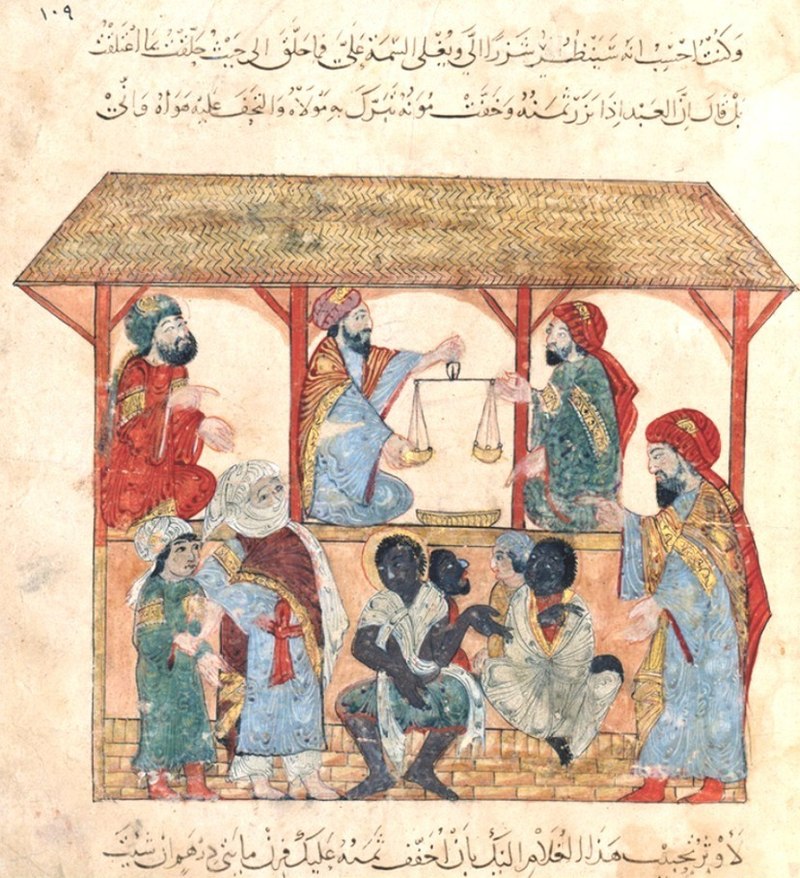 ١٠٩
وكنتُ احْسِبُ انه سَيَنظُر شَزرًا اليَّ ويُغلي السِّيمَة عليَّ فما حلَّق الى حَيثُ حلَّقتُ اعْتَلَقْتُ
بل قال انَّ العَبْد اذا نَزَرَ ثمنُه وخفَّتْ مُونهُ تَبرَّك به مولاهُ والتحفَ عليه هواهُ وانّي
لأوثر تحبيبَ هذا الغُلام اليك بأن أخفّف ثمنهُ عليك فزنْ مايتي درهم ان شيت